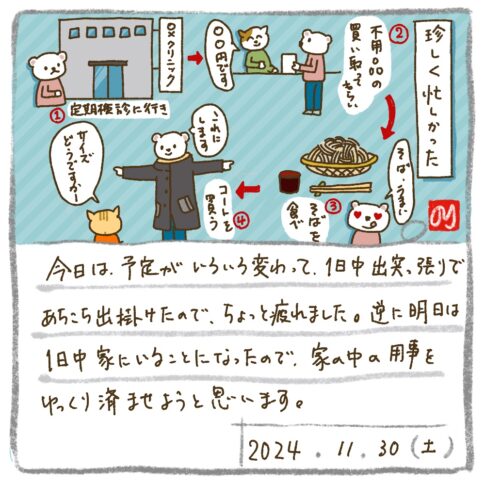 珍しく忙しかった
○×クリニック
①
定期検診に行き
○○円です
②
不用○○の
買い取ってもらい
そば、うまい
③
そばを
食べ
④
コートを
買う
これに
します
サイズ
どうですかー
今日は、予定がいろいろ変わって、1日中出突っ張りで
あちこち出掛けたので、ちょっと疲れました。逆に明日は
1日中家にいることになったので、家の中の用事を
ゆっくり済ませようと思います。
2024.11.30(土)